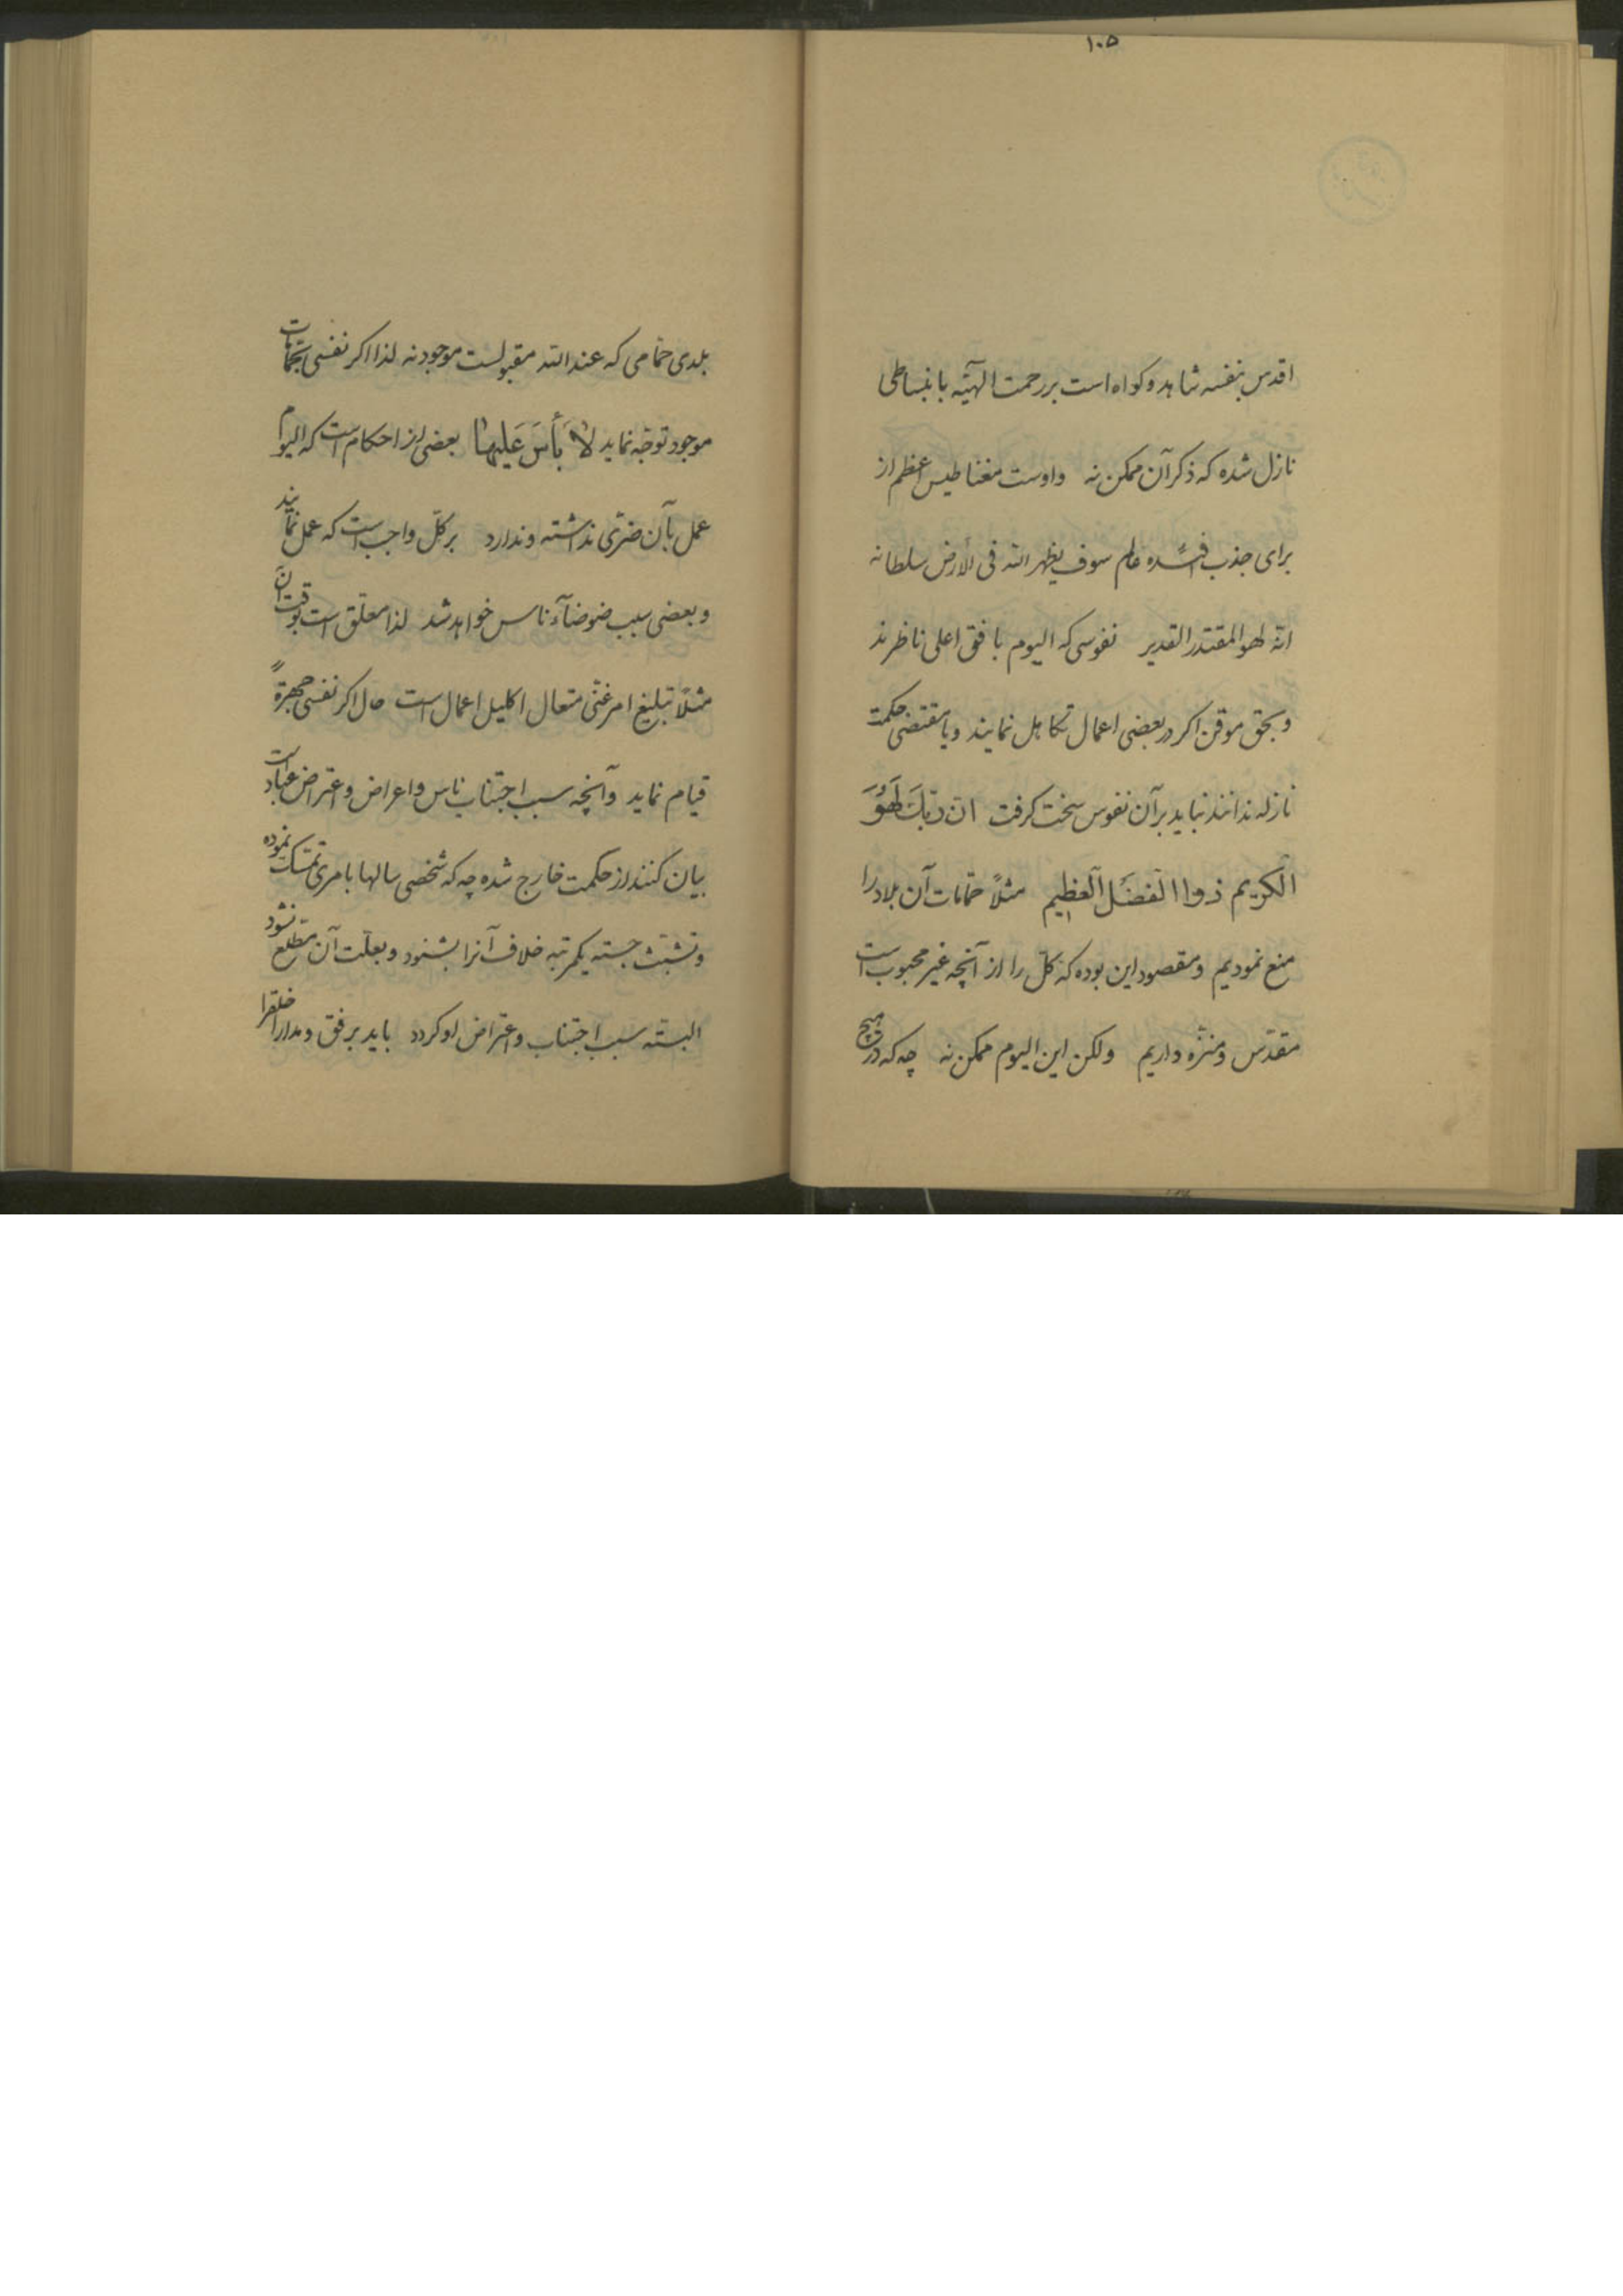 ١٠٥
اقدس بنفسه شاهد و کواه است بر رحمت الهیّه بانبساطی
نازل شده که ذکر آن ممکن نه واوست مغناطیس اعظم از
برای جذب افئدهٔ عالم سوف یظهر الله فی الارض سلطانه
انّه لهو المقتدر القدیر نفوسی که الیوم بافق اعلی ناظرند
و بحق موقن اکر در بعضی اعمال تکاهل نمایند و یا مقتضی حکمت
نازله ندانند نباید بر آن نفوس سخت کرفت انّ ربّکَ لَهُوَ
الکریم ذوا الفضل العظیم مثلاً حمّامات آن بلاد را
منع نمودیم و مقصود این بوده که کلّ را از آنچه غیر محبوب است
مقدّس و منزّه داریم ولکن این الیوم ممکن نه چه که در هیچ
بلدی حمّامی که عند الله مقبولست موجود نه لذا اکر نفسی بحمّامات
موجود توجّه نماید لا بَأسَ عَلیها بعضی از احکام است که الیوم
عمل بآن ضرّی نداشته و ندارد بر کلّ واجب است که عمل نمایند
و بعضی سبب ضوضآء ناس خواهد شد لذا معلّق است بوقت آن
مثلاً تبلیغ امر غنیّ متعال اکلیل اعمال است حال اکر نفسی جهرةً
قیام نماید و آنچه سبب اجتناب ناس و اعراض و اعتراض عباد است
بیان کند از حکمت خارج شده چه که شخصی سالها بامری تمسّک نموده
و تشبّث جسته یکمرتبه خلاف آنرا بشنود و بعلّت آن مطّلع نشود
البتّه سبب اجتناب و اعتراض او کردد باید برفق و مدارا خلقرا